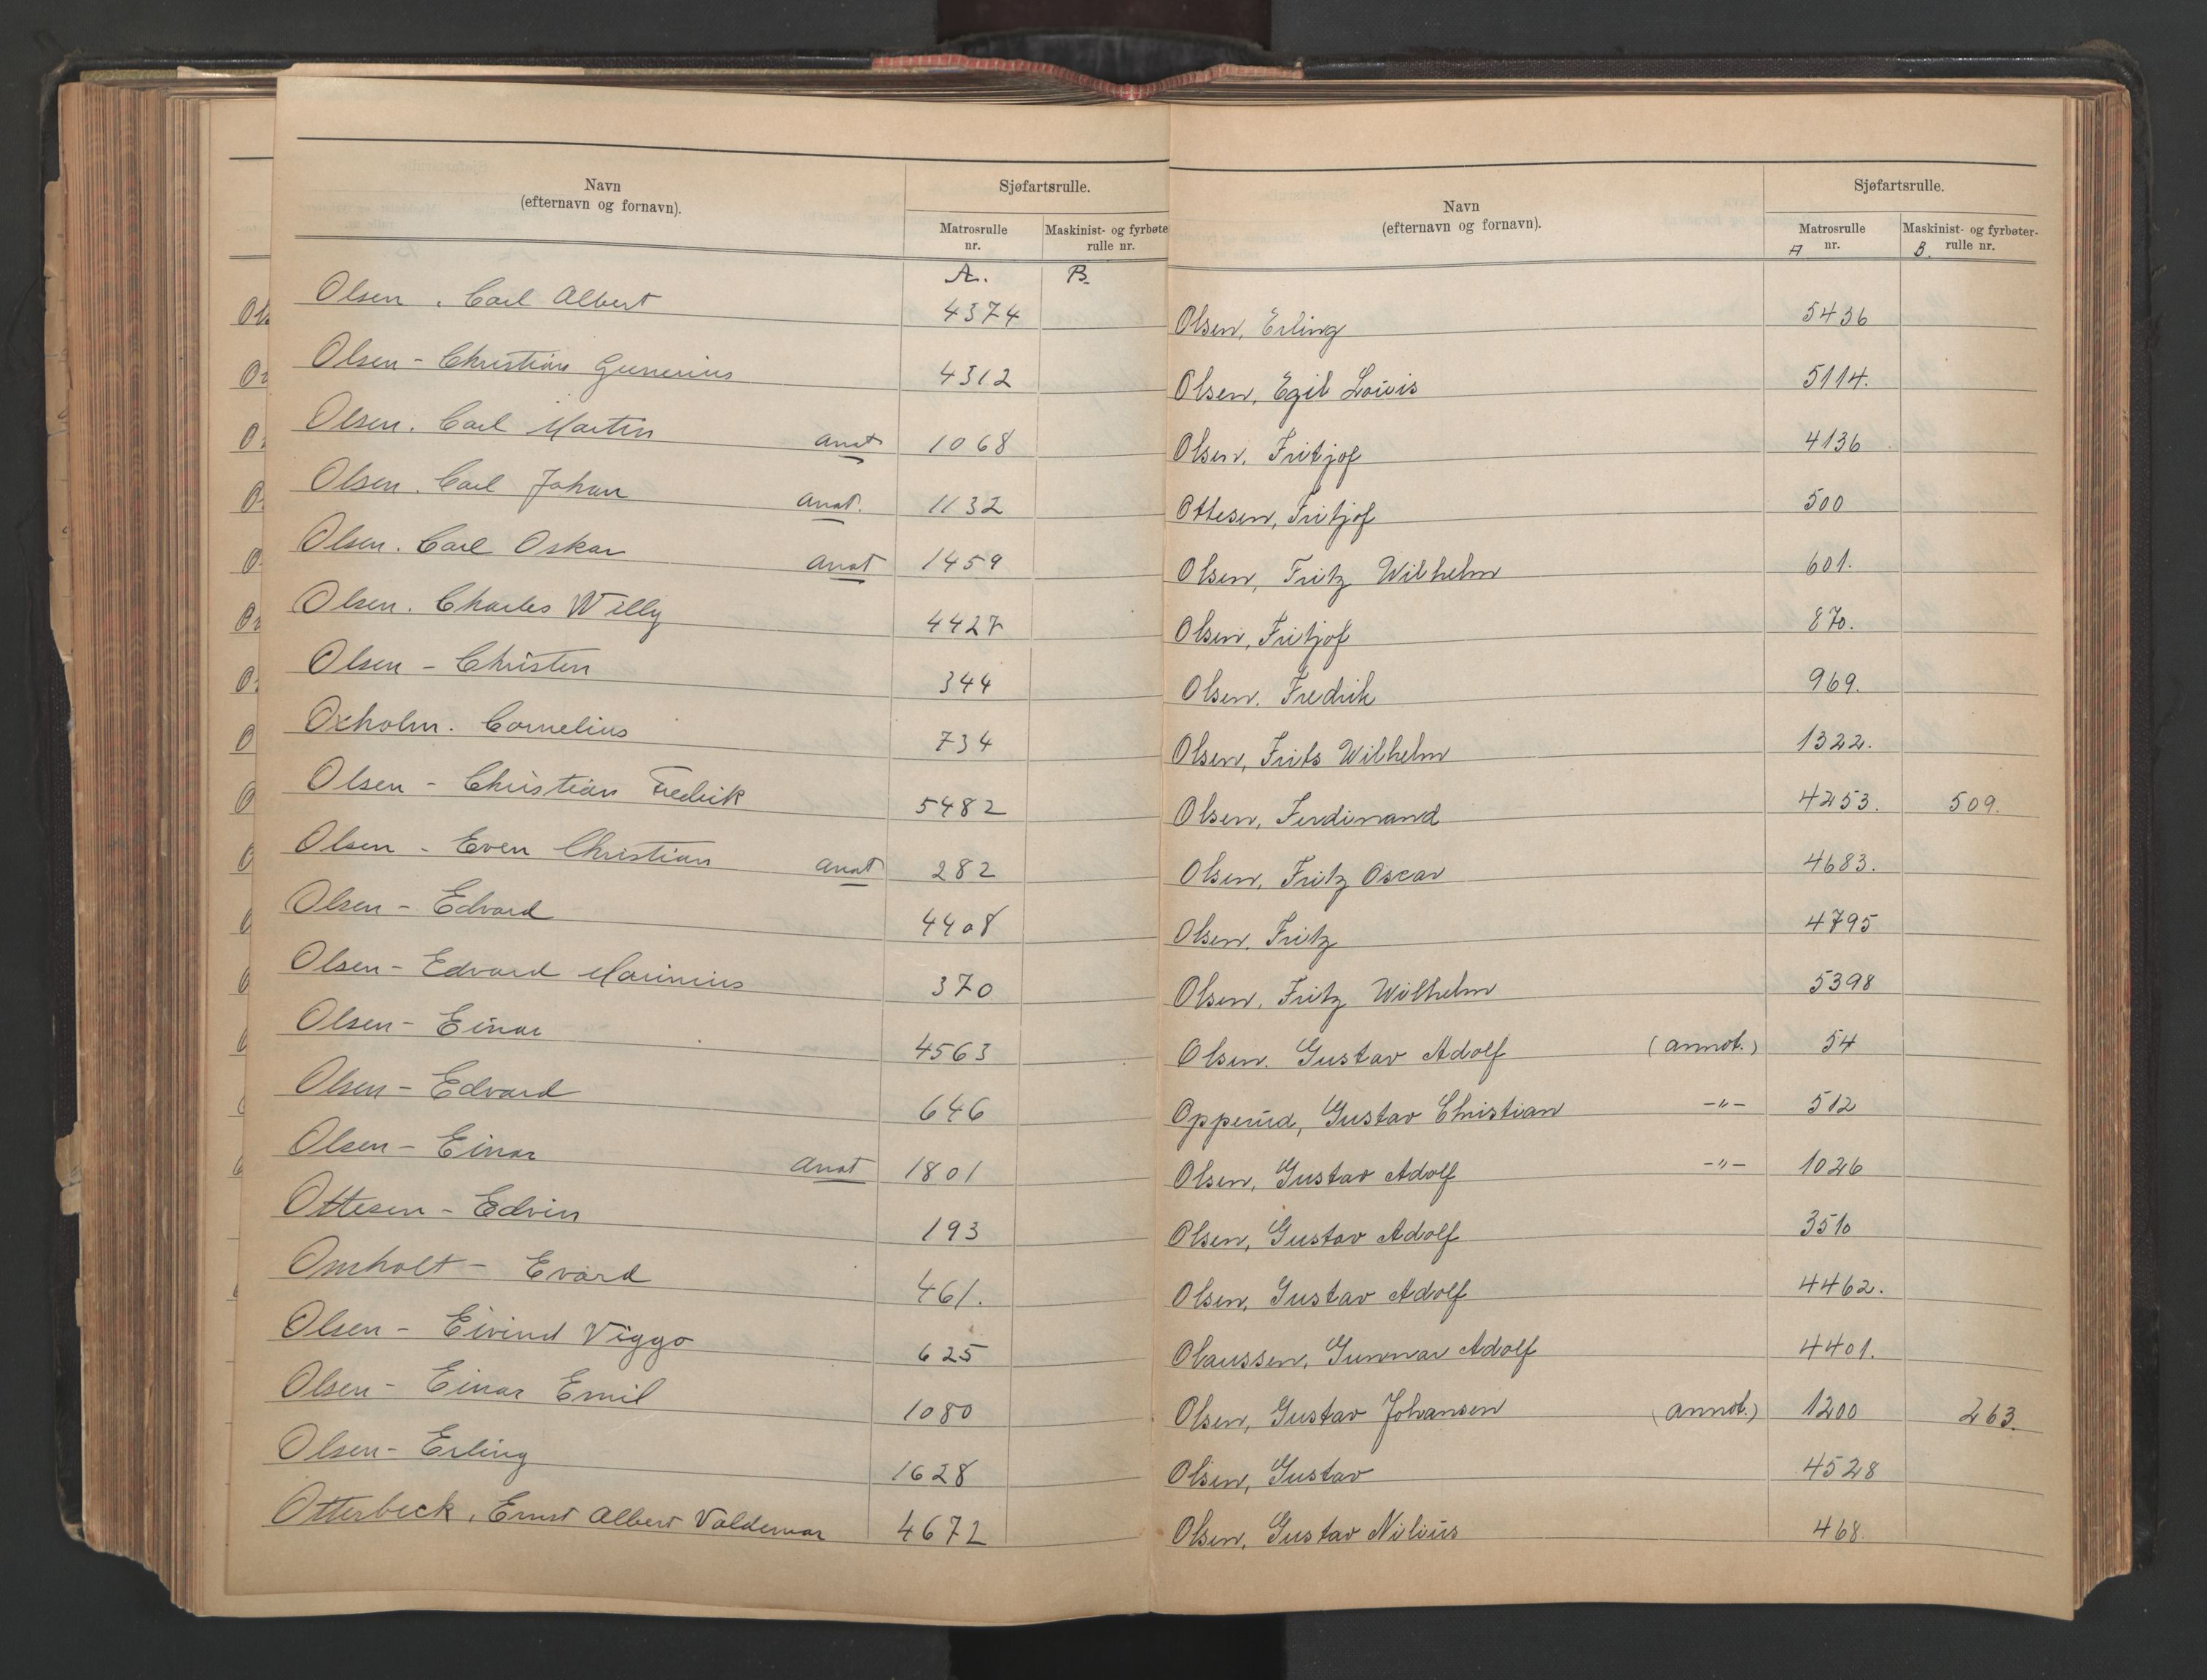 Navn
(efternavn og fornavn).
Sjøfartsrulle.
Matrosrulle nr.
Maskinist- og fyrbøter- rulle nr.
A. B.
Olsen, Carl Albert 4374
Olsen - Christian Gunerius 4312
Olsen. Carl Martin anot 1068
Olsen. Carl Johan anot. 1132
Olsen. Carl Oskar anot 1459
Olsen. Charles Willy 4427
Olsen - Christen 344
Oxholm. Cornelius 734
Olsen - Christian Fredrik 5482
Olsen - Even Christian anot 282
Olsen - Edvard 4408
Olsen - Edvard Marinius 370
Olsen - Einar 4563
Olsen - Edvard 646
Olsen - Einar anot 1801
Ottesen - Edvin 193
Omholt - Evard 461.
Olsen - Eivind Viggo 625
Olsen - Einar Emil 1080
Olsen - Erling 1628
Otterbeck, Ernst Albert Valdemar 4672
Navn
(efternavn og fornavn).
Sjøfartsrulle.
Matrosrulle nr.
Maskinist- og fyrbøter- rulle nr.
A B.
Olsen, Erling 5436
Olsen, Egil Louis 5114.
Olsen, Fritjof 4136
Ottesen, Fritjof 500
Olsen, Fritz Wilhelm 601.
Olsen, Fritjof 870.
Olsen. Fredrik 969.
Olsen, Frits Wilhelm 1322.
Olsen, Ferdinand 4253. 509.
Olsen, Fritz Oscar 4683.
Olsen. Fritz 4795
Olsen, Fritz Wilhelm 5398
Olsen. Gustav Adolf (annot.) 54
Opperud, Gustav Christian -"- 512
Olsen, Gustav Adolf -"- 1026
Olsen, Gustav Adolf 3510
Olsen, Gustav Adolf 4462.
Olaussen, Gunnar Adolf 4401.
Olsen, Gustav Johansen (annot.) 1200 263.
Olsen, Gustav 4528
Olsen, Gustav Nilius 468.